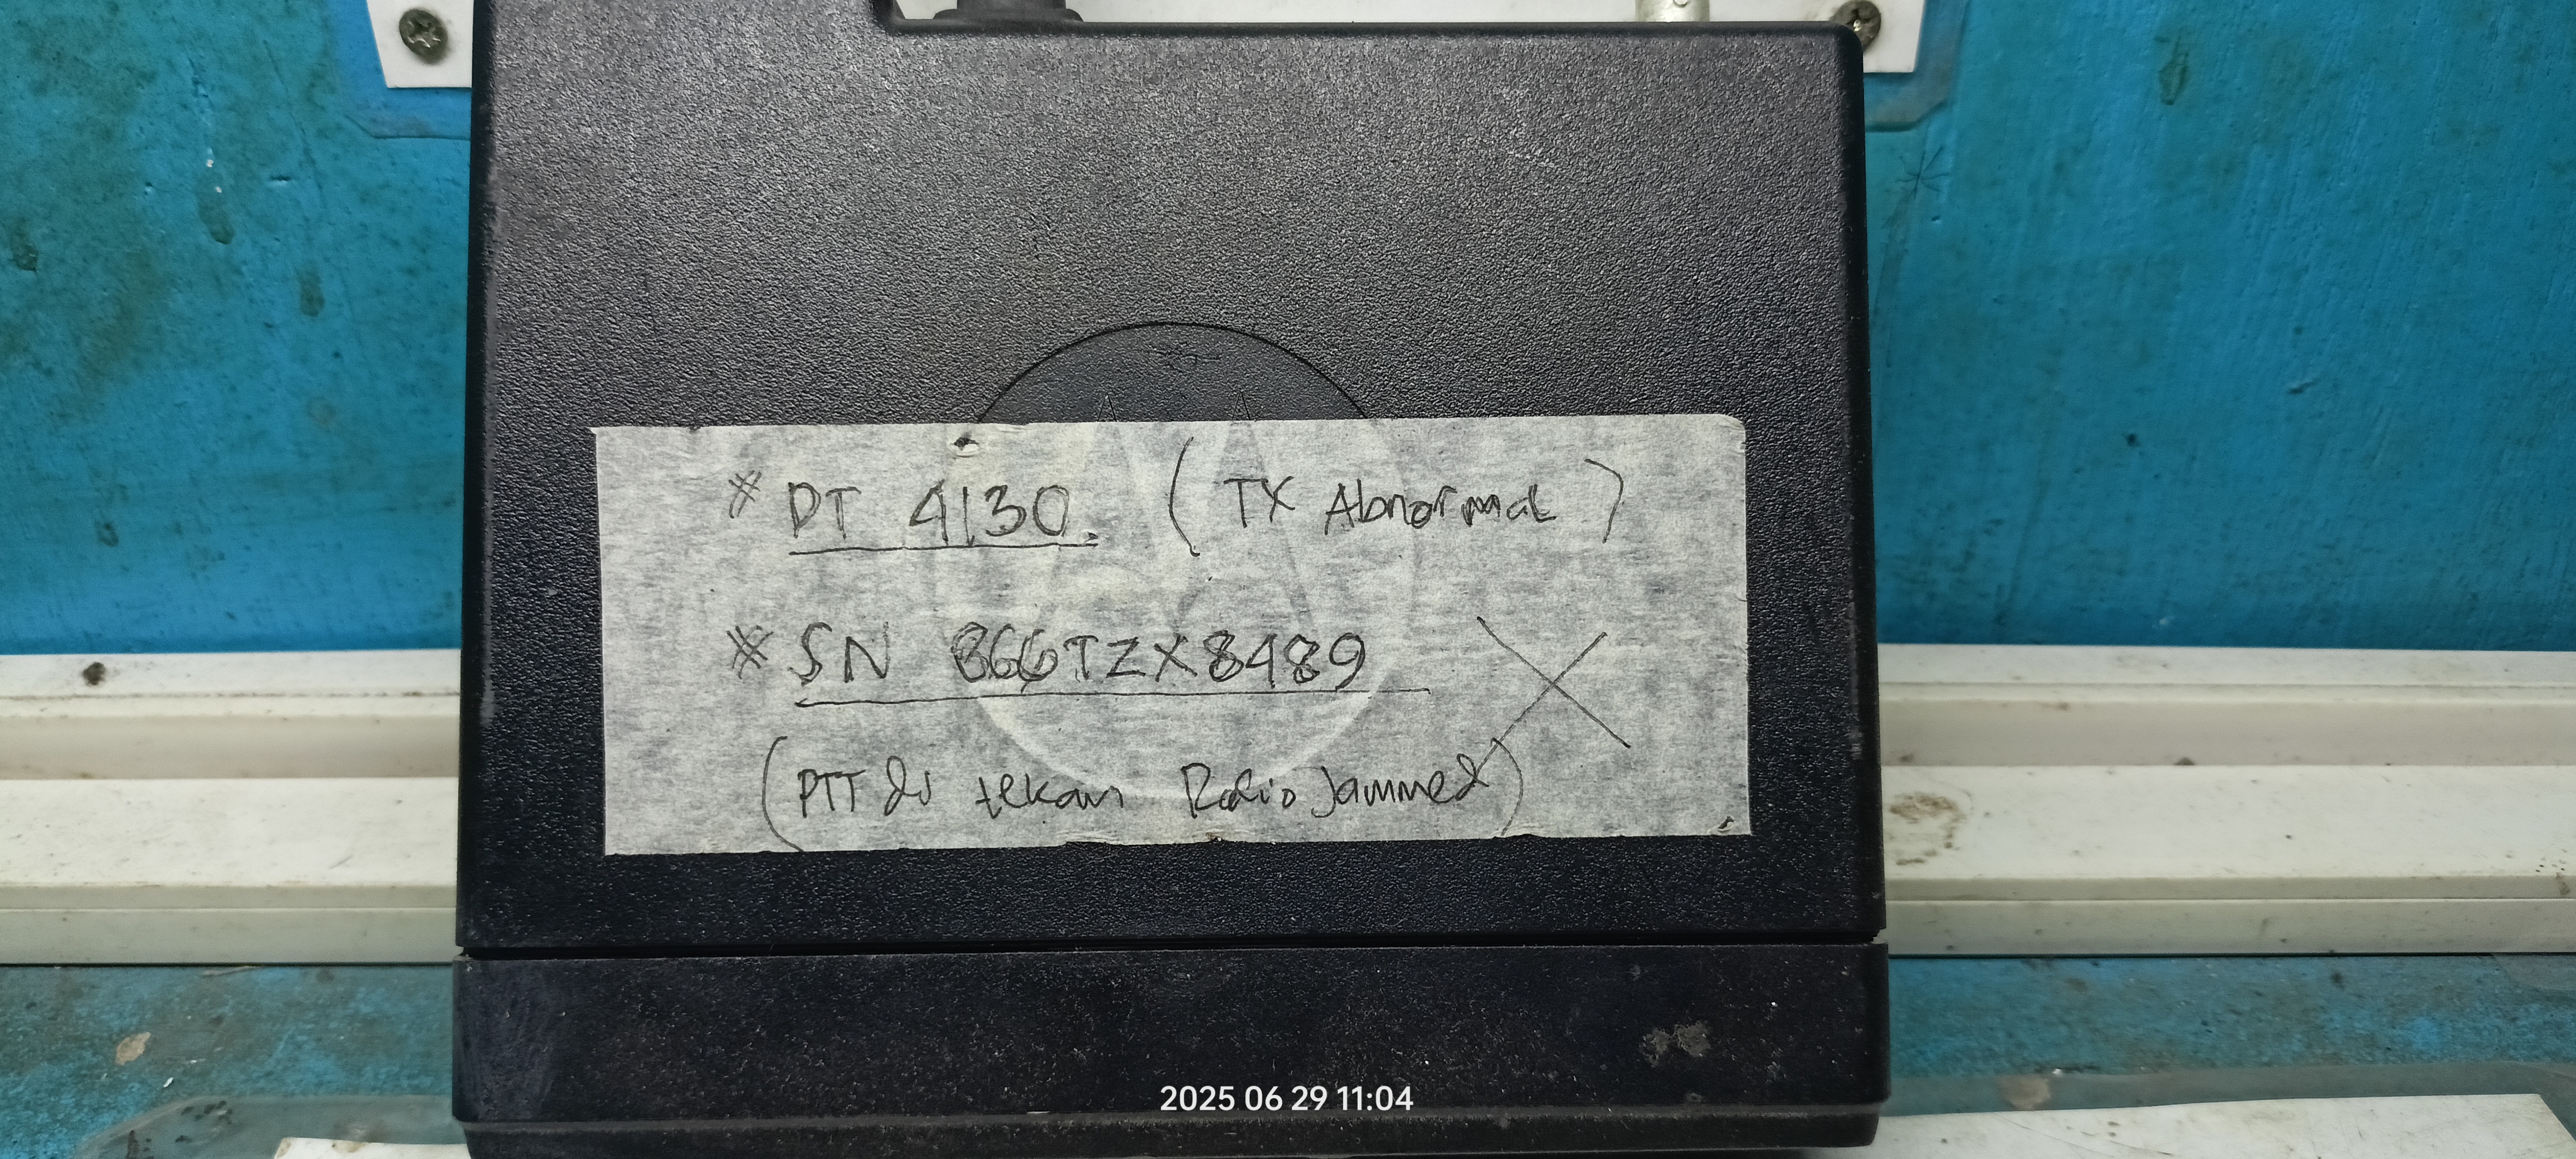 * DT 4130. ( TX Abnormal )
* SN 866TZX8489 X
( PTT di tekan Radio Jammed )
2025 06 29 11:04